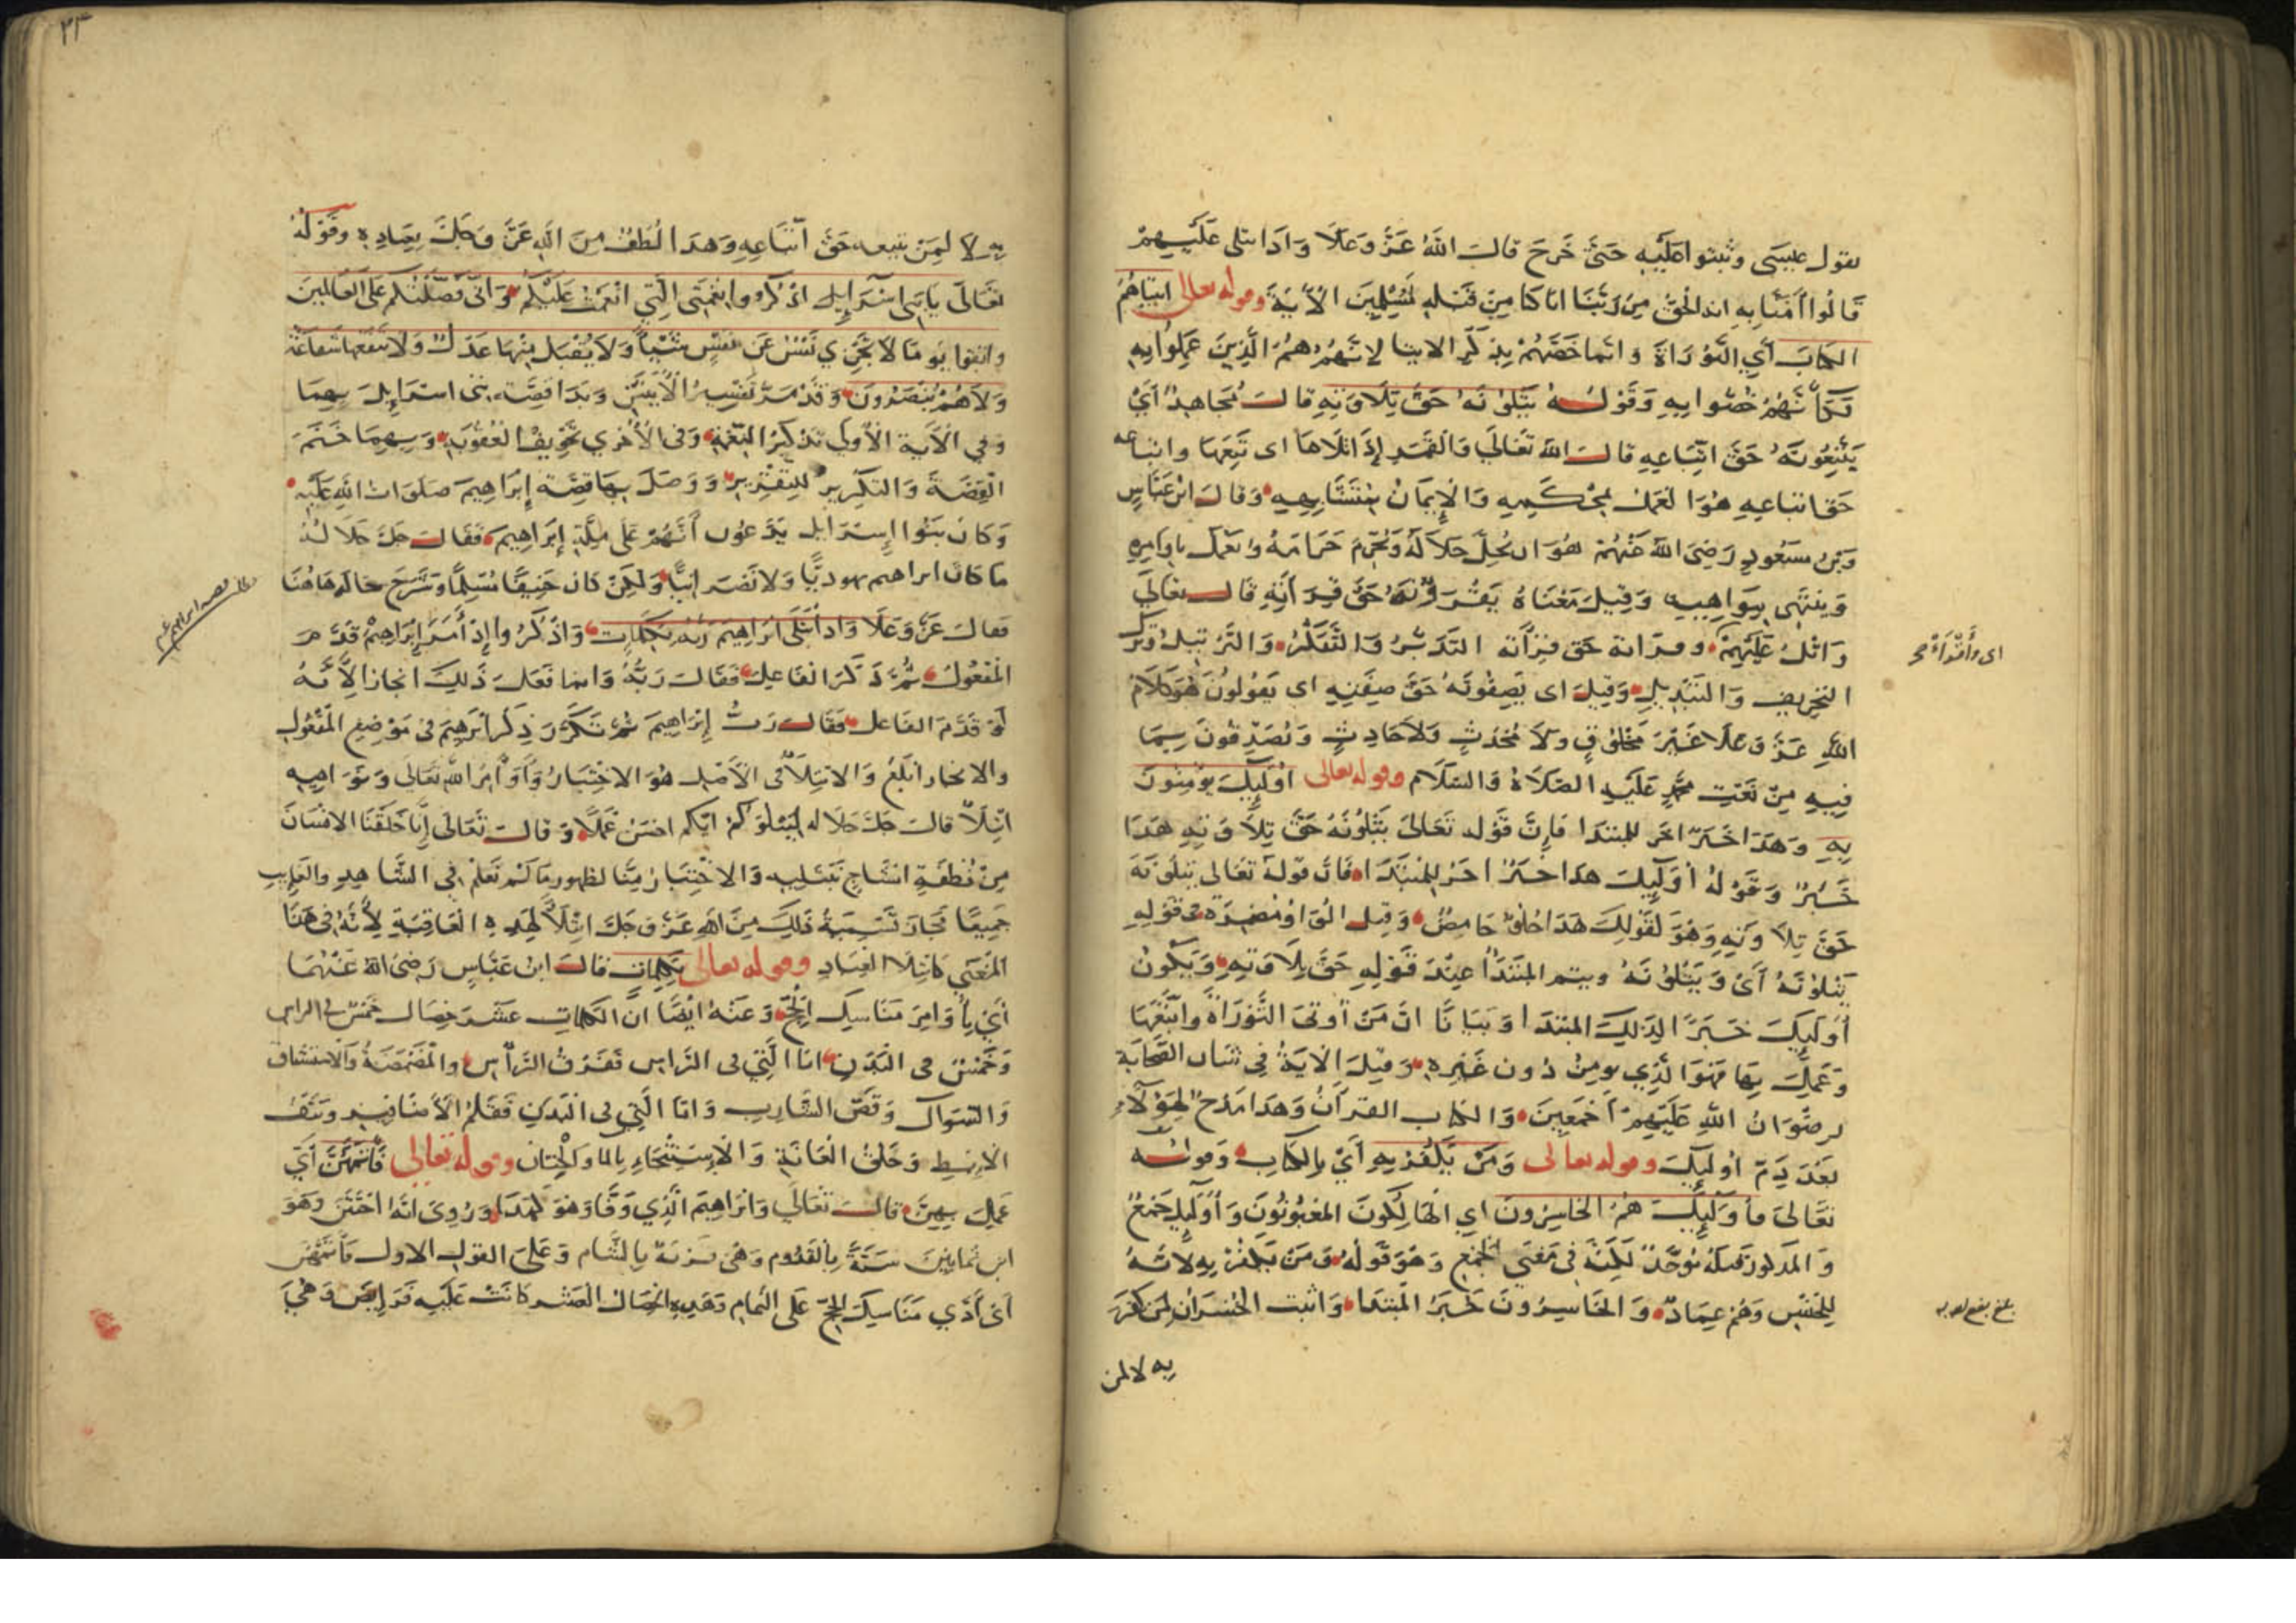 بقول عيسى وثبتوا عليه حتى خرج قال الله عز وعلا واذا يتلى عليهم
قالوا آمنا به انه الحق من ربنا انا كنا من قبله مسلمين الآية وقوله تعالى اتيناهم
الكتاب أي التوراة وانما خصهم بذكر الايتا لانهم هم الذين عملوا به
فكأنهم خصوا به وقوله يتلونه حق تلاوته قال مجاهد أي
يتبعونه حق اتباعه قال الله تعالى والقمر إذا تلاها اى تبعها واتباعه
حق اتباعه هو العمل بمحكمه والإيمان بمتشابهه وقال ابن عباس
وبن مسعود رضى الله عنهم هو ان يحل حلاله ويحرم حرامه ويعمل باوامره
وينتهى بنواهيه وقيل معناه يقرؤنه حق قرآنه قال تعالى
واتل عليهم وقرانه حق قرآنه التدبر والتفكر والترتيل وترك
التحريف والتبديل وقيل اى يصفونه حق صفته اى يقولون هو كلام
الله عز وعلا غير مخلوق ولا محدث ولا حادث ويصدقون بما
فيه من نعت محمد عليه الصلاة والسلام وقوله تعالى اولئك يؤمنون
به وهذا خبر اخر للمبتدا فإن قوله تعالى يتلونه حق تلاوته هذا
خبر وقوله أولئك هذا خبر اخر للمبتدا فان قوله تعالى يتلونه
حق تلاوته وهو لقولك هذا حلو حامض وقيل الواو مضمرة فى قوله
يتلونه أي ويتلونه ويتم المبتدأ عند قوله حق تلاوته ويكون
أولئك خبرا لذلك المبتدا وبيانا ان من أوتى التوراة واتبعها
وعمل بها فهو الذي يومن دون غيره وقيل الاية في شان الصحابة
رضوان الله عليهم أجمعين والكتاب القرآن وهذا مدح لهؤلاء
بعد ذم أولئك وقوله تعالى ومن يكفر به أي بالكتاب وقوله
تعالى فأولئك هم الخاسرون اي الهالكون المغبونون وأولئك جمع
والمذكور قبله موحد لكنه في معنى الجمع وهو قوله ومن يكفر به لانه
للجنس وهم عماد والخاسرون خبر المبتدا واثبت الخسران لمن كفر
به لا لمن
اى وأقراءة صح
بلغ
٢٣
به لا لمن يتبعه حق اتباعه وهذا لطف من الله عز وجل بعباده وقوله
تعالى يا بنى اسرآيل اذكروا نعمتى التي انعمت عليكم وانى فضلتكم على العالمين
واتقوا يوما لا تجزي نفس عن نفس شيئا ولا يقبل منها عدل ولا تنفعها شفاعة
ولا هم ينصرون وقد مر تفسير الآيتين وبدا قصة بنى اسرايل بهما
وفي الآية الأولى تذكير النعمة وفى الأخرى تخويف العقوبة وبهما ختم
القصة والتكرير للتقرير ووصل بها قصة إبراهيم صلوات الله عليه
وكان بنوا إسرايل يدعون أنهم على ملة إبراهيم فقال جل جلاله
ما كان ابراهم يهوديا ولا نصرانيا ولكن كان حنيفا مسلما وشرح حاله هاهنا
فقال عز وعلا واذ ابتلى ابراهيم ربه بكلمات واذكروا إذ أمر إبراهيم قدم
المفعول ثم ذكر الفاعل فقال ربه وانما فعل ذلك انجازا لانه
لو قدم الفاعل فقال رب إبراهيم ثم تكرر ذكر ابرهيم فى موضع المفعول
والايجاز ابلغ والابتلاء في الأصل هو الاختبار وأوامر الله تعالى ونواهيه
ابتلاء قال جل جلاله ليبلوكم ايكم احسن عملا وقال تعالى إنا خلقنا الانسان
من نطفة امشاج نبتليه والاختبار منا لظهور ما لم نعلم في الشاهد والغايب
جميعا فجاز تسمية ذلك من الله عز وجل ابتلاء لهذه العاقبة لأنه في هذا
المعنى كابتلاء العباد وقوله تعالى بكلمات قال ابن عباس رضى الله عنهما
أي بأوامر مناسك الحج وعنه ايضا ان الكلمات عشر خصال خمس في الراس
وخمس فى البدن اما التي فى الراس ففرق الرأس والمضمضة والاستنشاق
والسواك وقص الشارب واما التي فى البدن فقلم الأظافير ونتف
الابط وحلق العانة والاستنجاء بالما والختان وقوله تعالى فأتمهن أي
عمل بهن قال تعالى وابراهيم الذي وفا وهو كهذا وروى انه اختتن وهو
ابن ثمانين سنة بالقدوم وهى قرية بالشام وعلى القول الاول فأتمهن
أى أدي مناسك الحج على التمام وهذه الخصال العشر كانت عليه فرايض وهي
مطلب قصه ابراهيم عم